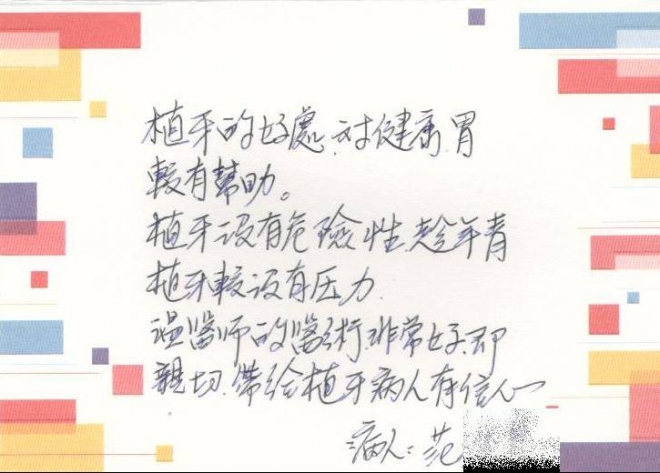 植牙的好處,对健康,胃
較有幫助。
植牙沒有危險性,趁年青
植牙較沒有压力.
溫醫师的醫術非常好,即
親切,帶给植牙病人有信心
病人:范